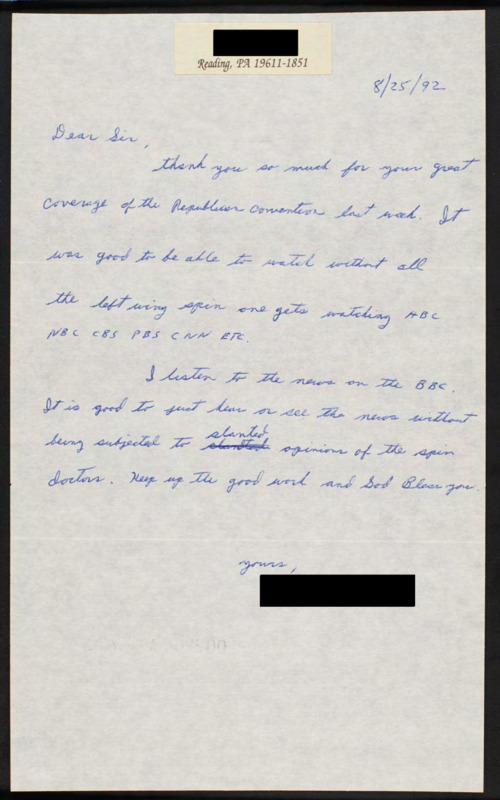 Reading, PA 19611-1851
8/25/92
Dear Sir,
thank you so much for your great
coverage of the Republican Convention last week. It
was good to be able to watch without all
the left wing spin one gets watching ABC
NBC CBS PBS CNN ETC.
I listen to the news on the BBC.
It is good to just hear or see the news without
being subjected to slanted opinions of the spin
doctors. Keep up the good work and God Bless you.
yours,